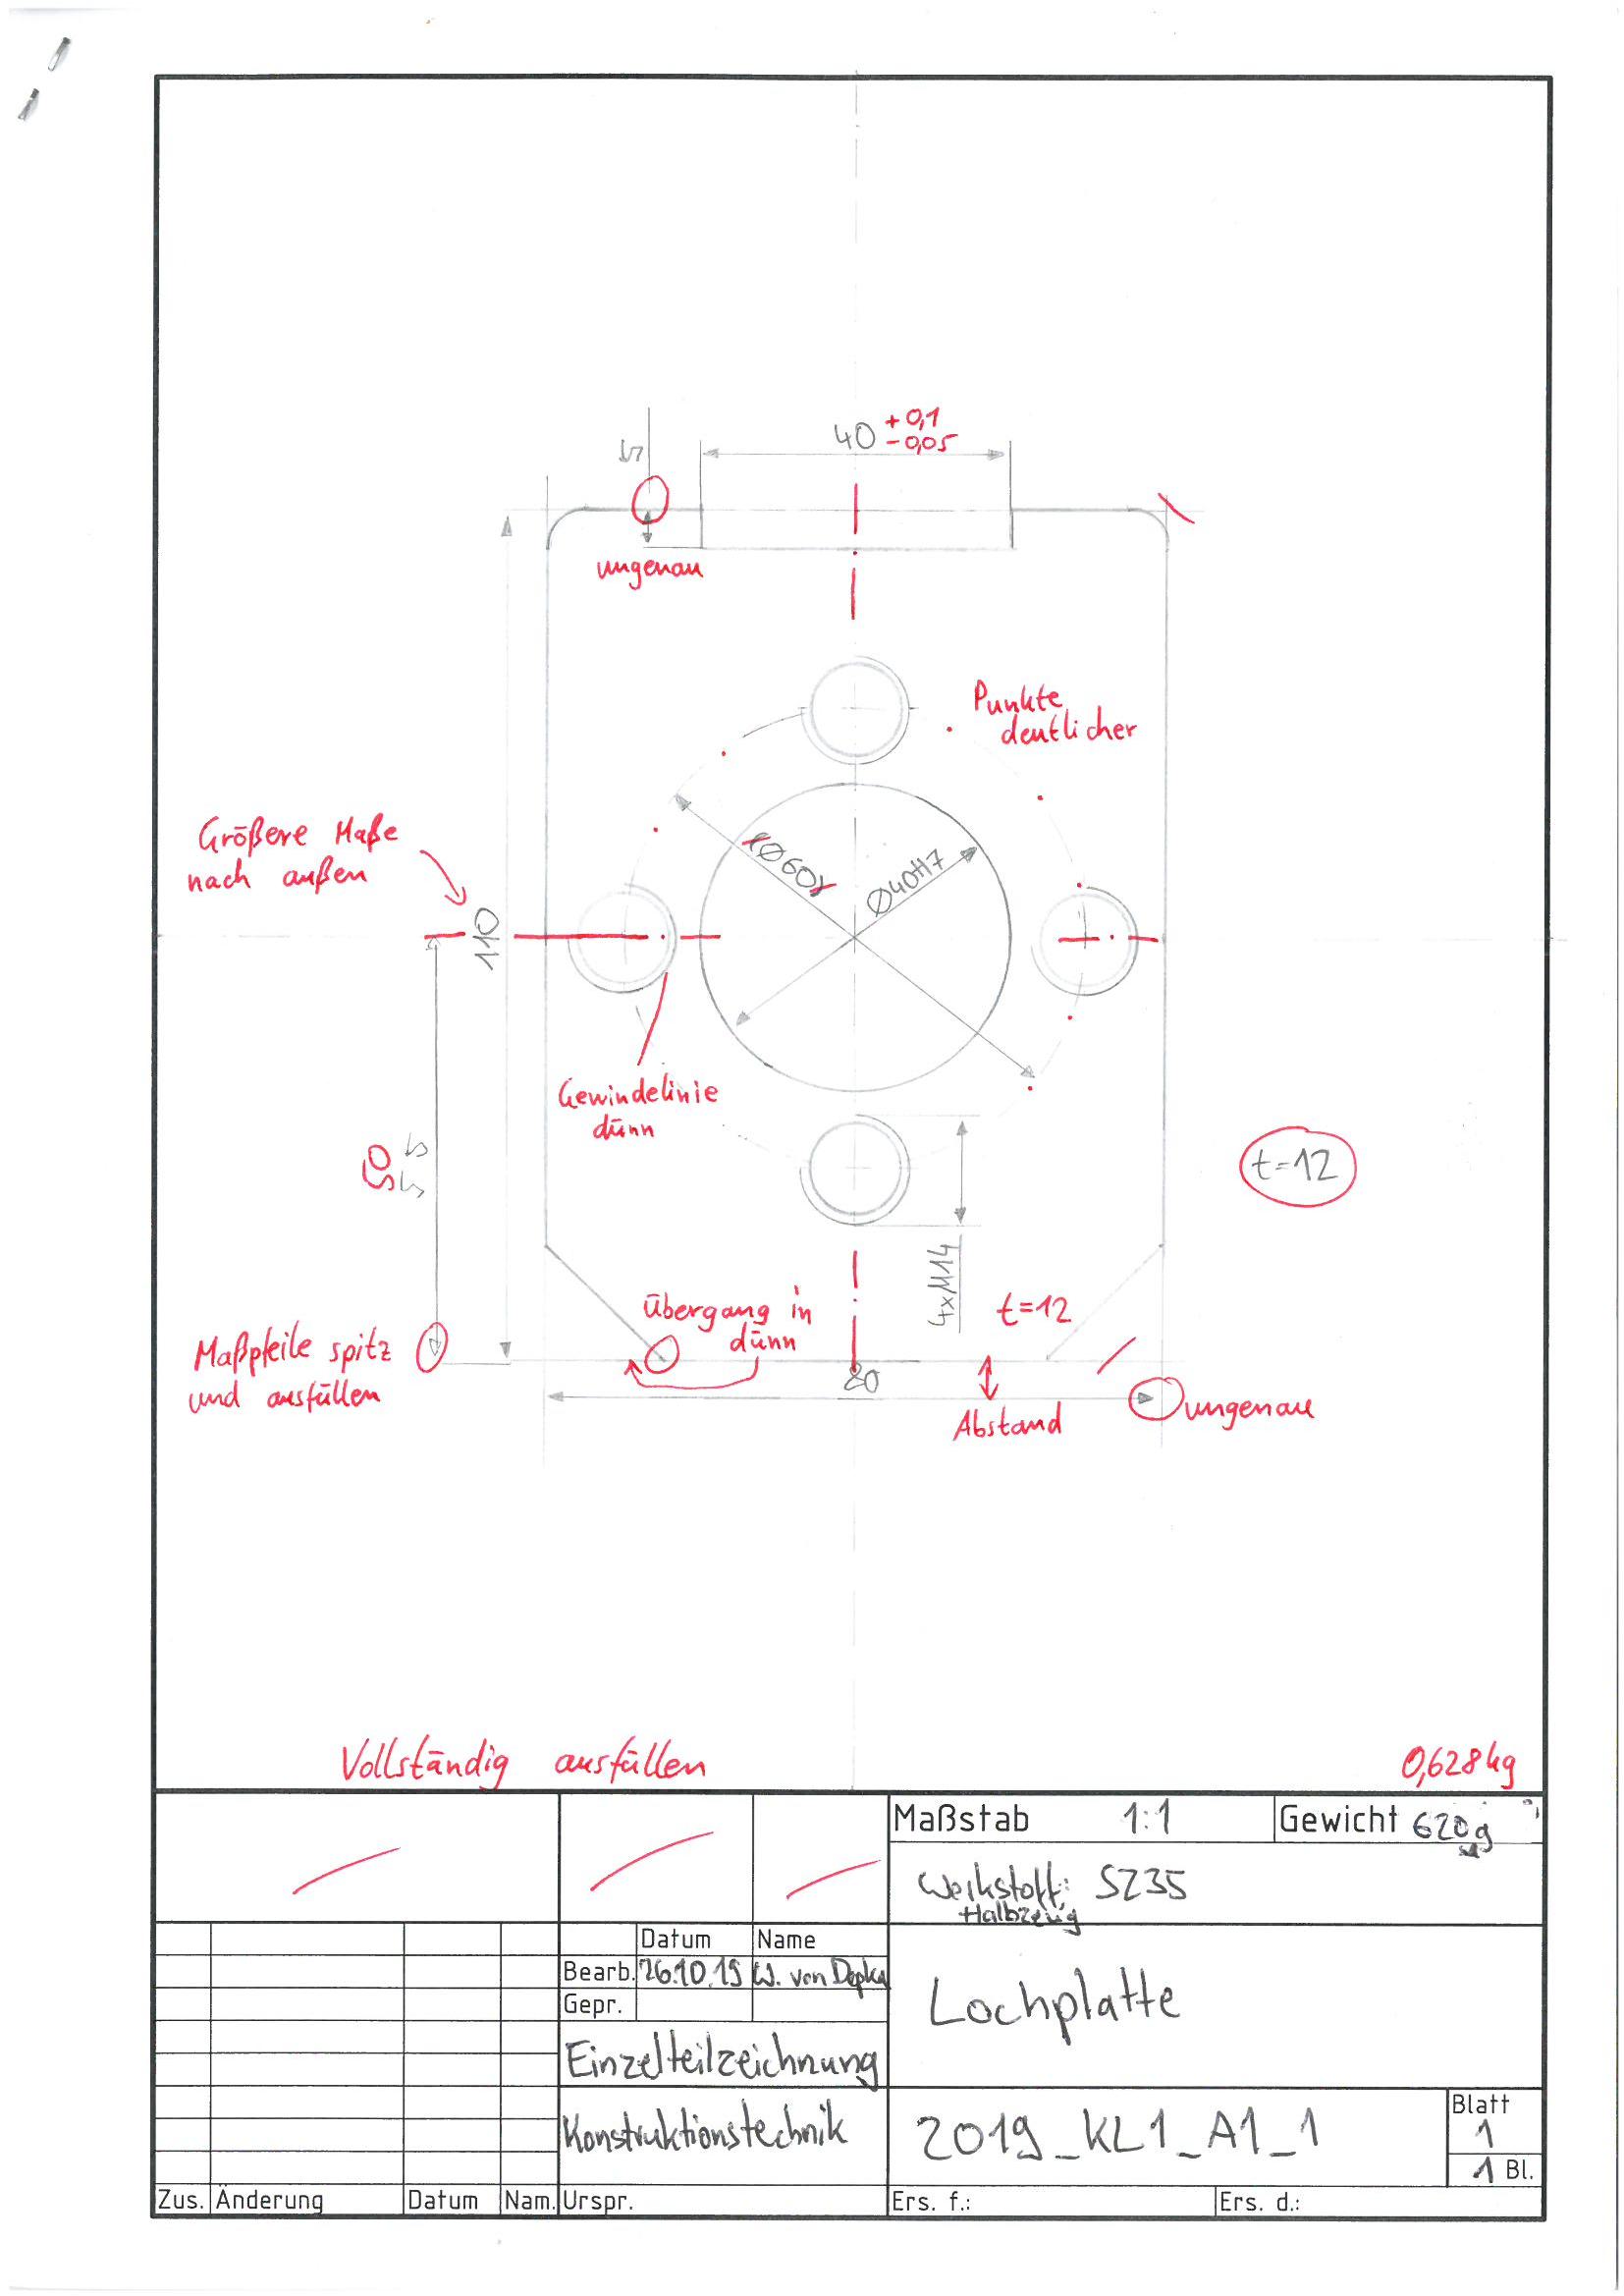 40 +0,1
-0,05
5
ungenau
Punkte
deutlicher
Größere Maße
nach außen
110
Ø60
Ø40H7
Gewindelinie
dünn
50
55
t=12
4xM14
t=12
Übergang in
dünn
Maßpfeile spitz
und ausfüllen
80
Abstand
ungenau
Vollständig ausfüllen
0,628kg
Maßstab 1:1
Gewicht 620g
Werkstoff: S235
Halbzeug
Datum Name
Bearb. 26.10.19 W. von Depka
Gepr.
Lochplatte
Einzelteilzeichnung
Konstruktionstechnik
2019_KL1_A1_1
Blatt
1
1 Bl.
Zus. Änderung Datum Nam. Urspr. Ers. f.: Ers. d.: